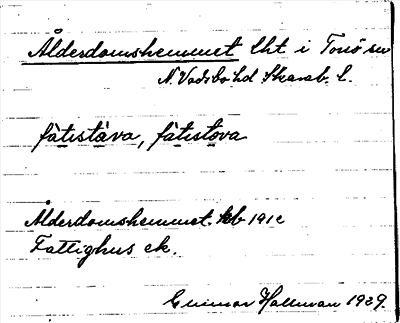 Ålderdomshemmet lht i Torsö sn
N. Vadsbo hd Skarab. l.
fàtıstàva, fàtıstova
Ålderdomshemmet kb 1910
Fattighus ek.
Gunnar Hallman 1929.